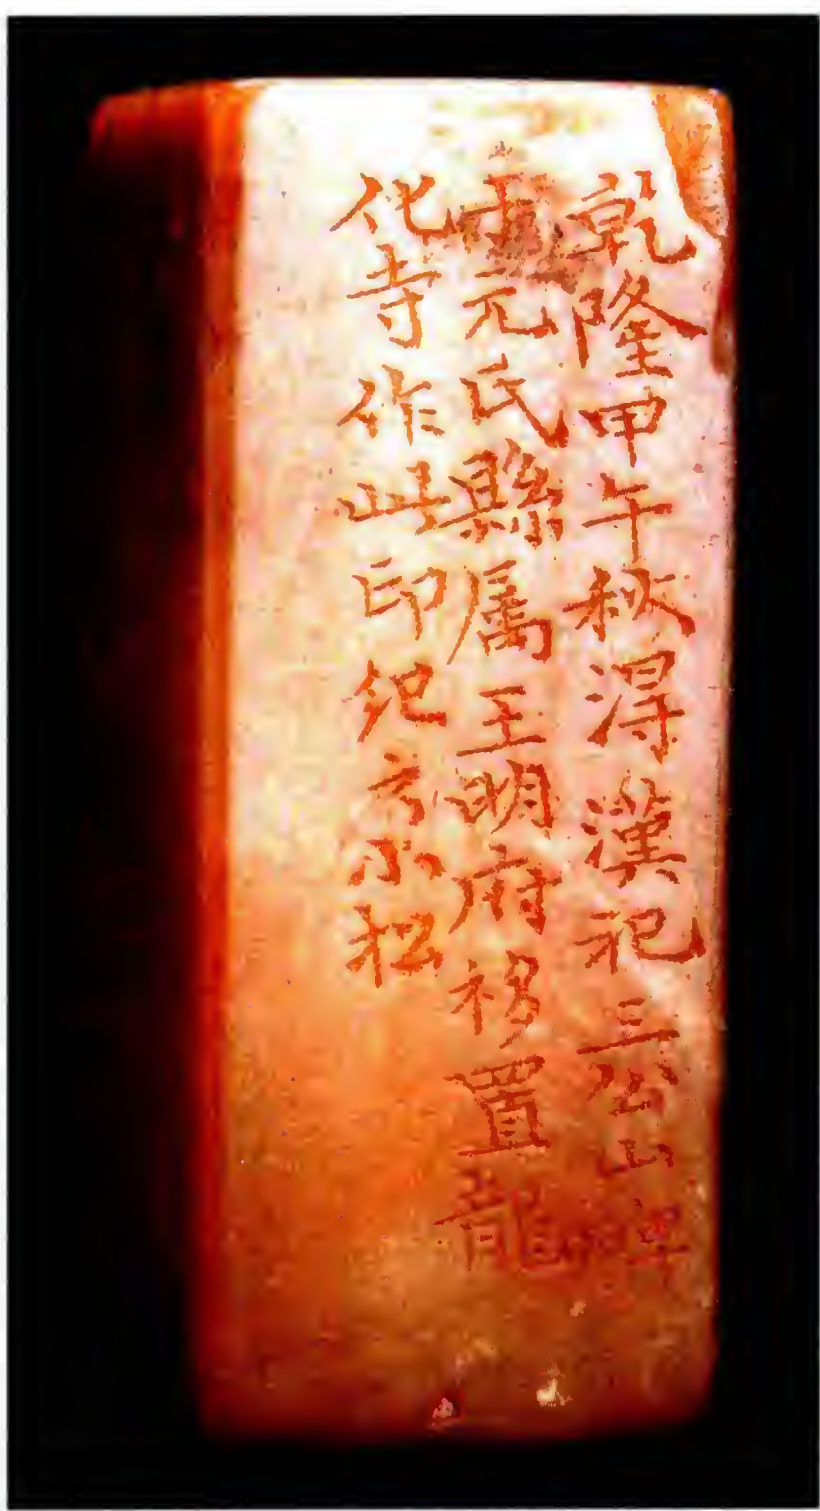 乾隆甲午秋淂漢祀三公山碑
于元氏縣属王明府移置龍
化寺作此印紀之小松